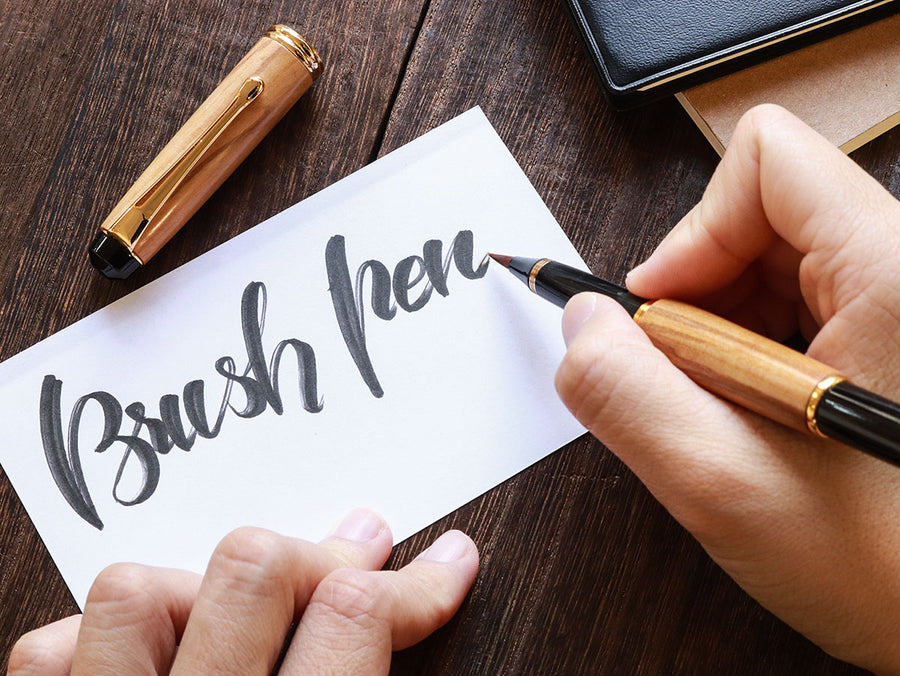 Brush pen